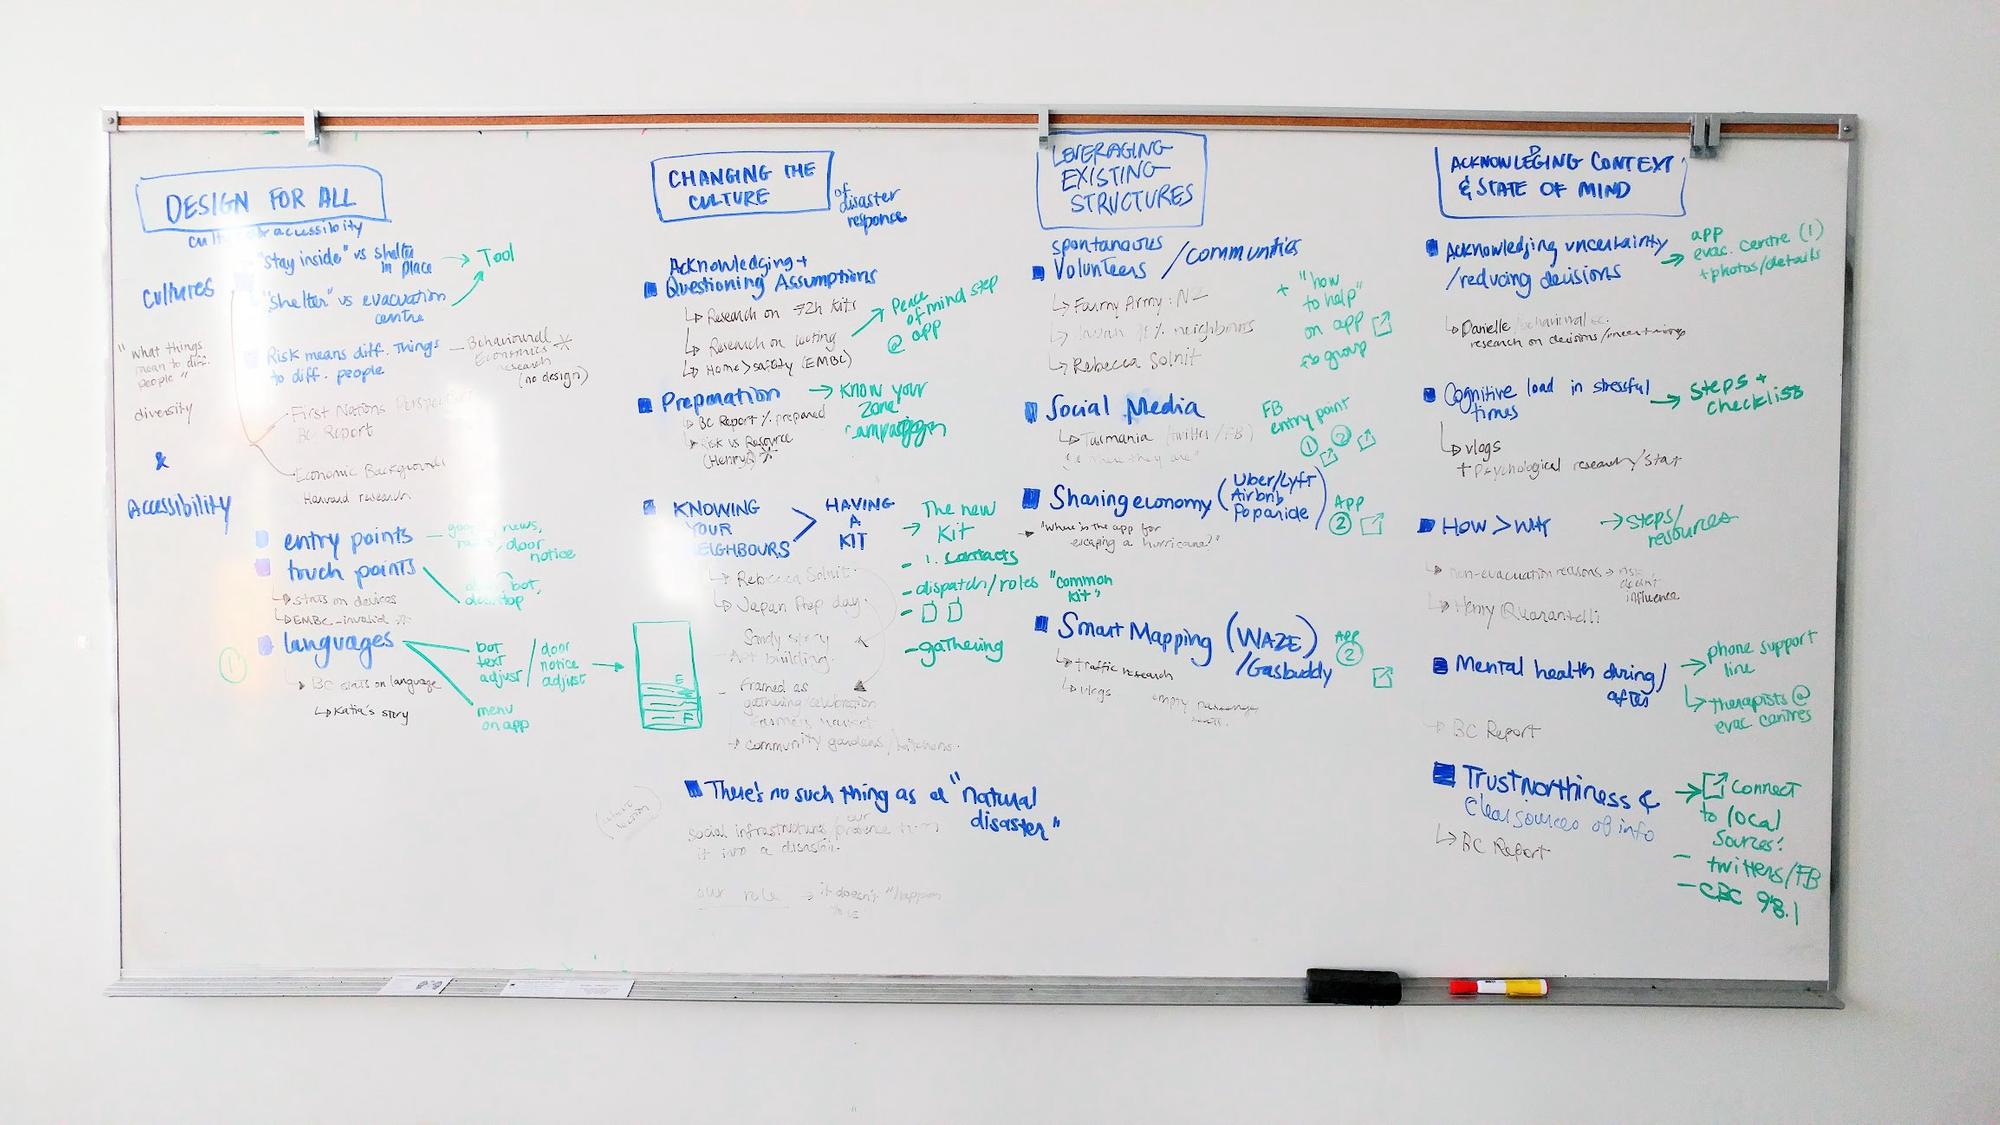 DESIGN FOR ALL
accessibility
"stay inside" vs shelter
in place
→ Tool
Cultures
"shelter" vs evacuation
centre
"what things
mean to diff.
people"
Risk means diff. things
to diff. people
Behavioural
Economics
research
(no design)
diversity
First Nations Perspective
BC Report
&
Economic Background
Harvard research
Accessibility
entry points
news,
door
notice
touch points
bot,
stats on devices
EMBC - invalid
1
languages
bot
text
adjust
/
door
notice
adjust
menu
on app
BC stats on language
Katia's story
CHANGING THE
CULTURE
of
disaster
responce
Acknowledging +
Questioning Assumptions
Research on 72h Kits
Research on looting
Home > safety (EMBC)
→ Peace
of mind step
@ app
Preparation
→ Know your
zone
campaign
BC Report % prepared
Risk vs Resource
(Henry Q)
KNOWING
YOUR
NEIGHBOURS
>
HAVING
A
KIT
→ The new
Kit
- 1. contacts
- dispatch/roles "common
kit"
- gathering
Rebecca Solnit
Japan Prep day
Sandy story
Apt building
Framed as
gathering/celebration
→ community gardens/kitchens
E
F
There's no such thing as a "natural
disaster"
social infrastructure/our presence turn
it into a disaster.
our role → it doesn't happen
LEVERAGING
EXISTING
STRUCTURES
spontaneous
Volunteers / communities
Farmy Army: NZ
% neighbours
Rebecca Solnit
+ "how
to help"
on app
FB group
Social Media
Tasmania (twitter / FB)
"go where they are"
FB
entry point
1 2
Sharing economy (Uber/Lyft
Airbnb
Popanide)
APP
2
"Where is the app for
escaping a hurricane?"
Smart Mapping (WAZE)
/Gasbuddy
APP
2
traffic research
vlogs
empty passenger
ACKNOWLEGING CONTEXT
D
& STATE OF MIND
Acknowledging uncertainty
/reducing decisions
→ app
evac. centre (1)
+ photos/details
Danielle / behavioral ec.
research on decisions/uncertainty
Cognitive load in stressful
times
→ Steps +
checklists
vlogs
+ Psychological research/stat
How > Why
→ steps/
resources
non-evacuation reasons → risk
doesn't
influence
Henry Quarantelli
Mental health during/
after
→ phone support
line
therapists @
evac centres
BC Report
Trustworthiness &
Clear sources of info
BC Report
→ Connect
to local
sources:
- twitters/FB
- CBC 98.1